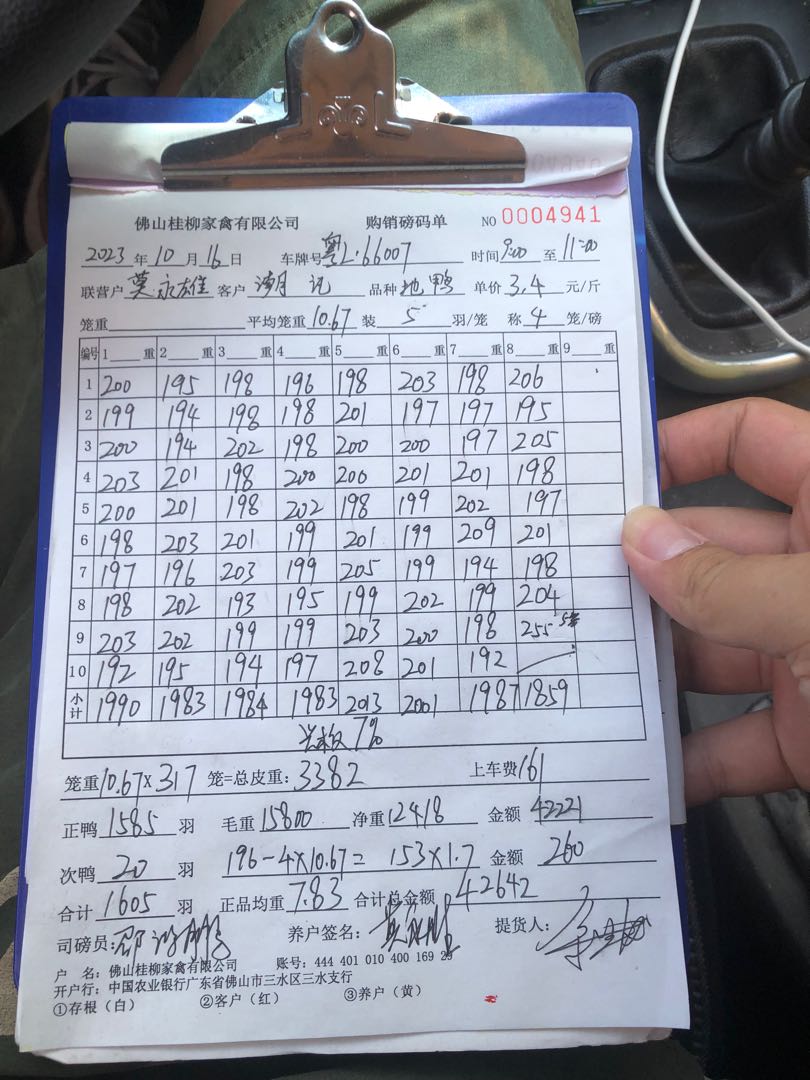 佛山桂柳家禽有限公司 购销磅码单 NO 0004941
2023 年 10 月 16 日 车牌号 粤L·66007 时间 9:00 至 11:00
联营户 莫永雄 客户 记 品种 地鸭 单价 3.4 元/斤
笼重 平均笼重 10.67 装 5 羽/笼 称 4 笼/磅
编号 1 重 2 重 3 重 4 重 5 重 6 重 7 重 8 重 9 重
1 200 195 198 196 198 203 198 206
2 199 194 198 198 201 197 197 195
3 200 194 202 198 200 200 197 205
4 203 201 198 200 200 201 201 198
5 200 201 198 202 198 199 202 197
6 198 203 201 199 201 199 209 201
7 197 196 203 199 205 199 194 198
8 198 202 193 195 199 202 199 204
9 203 202 199 199 203 200 198 255
10 192 195 194 197 208 201 192
小计 1990 1983 1984 1983 2013 2001 1987 1859
7%
笼重 10.67 X 317 笼=总皮重: 3382 上车费 161
正鸭 1585 羽 毛重 15800 净重 12418 金额 42221
次鸭 20 羽 196-4×10.67= 153×1.7 金额 260
合计 1605 羽 正品均重 7.83 合计总金额 42642
司磅员: 养户签名: 提货人:
户 名: 佛山桂柳家禽有限公司 账号: 444 401 010 400 169 29
开户行: 中国农业银行广东省佛山市三水区三水支行
①存根(白) ②客户(红) ③养户(黄)